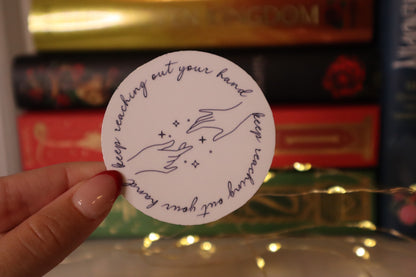 keep reaching out your hand
keep reaching out your hand
KINGDOM